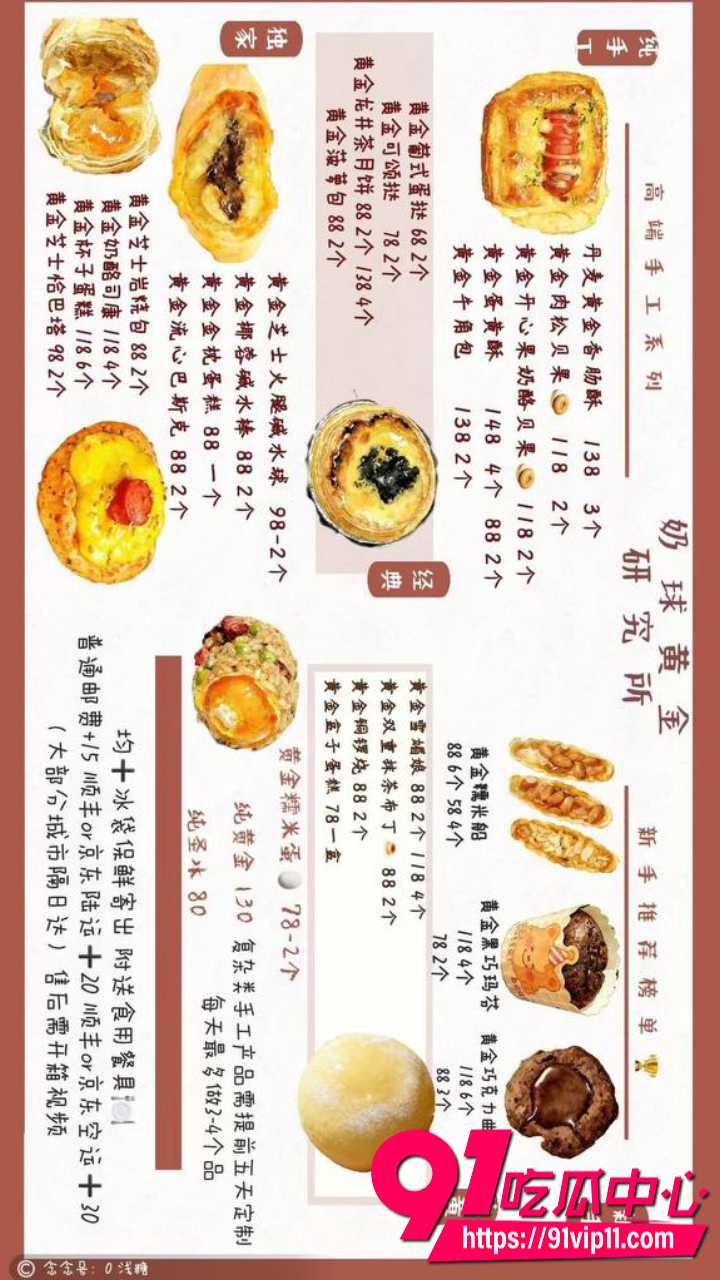 奶球黄金
研究所
高端手工系列
纯手工
丹麦黄金香肠酥 138 3个
黄金肉松贝果🥯 118 2个
黄金开心果奶酪贝果🥯 118 2个
黄金蛋黄酥 148 4个 88 2个
黄金牛角包 138 2个
黄金葡式蛋挞 68 2个
黄金可颂挞 78 2个
黄金龙井茶月饼 88 2个 138 4个
黄金菠萝包 88 2个
经典
独家
黄金芝士火腿碱水球 98-2个
黄金椰蓉碱水棒 88 2个
黄金金枕蛋糕 88 一个
黄金流心巴斯克 88 2个
黄金芝士岩烧包 88 2个
黄金奶酪司康 118 4个
黄金杯子蛋糕 118 6个
黄金芝士恰巴塔 98 2个
新手推荐榜单🏆
黄金糯米船
88 6个 58 4个
黄金黑巧玛芬
118 4个
78 2个
黄金巧克力曲
118 6个
88 3个
黄金雪媚娘 88 2个 118 4个
黄金双重抹茶布丁🍮 88 2个
黄金铜锣烧 88 2个
黄金盒子蛋糕 78 一盒
黄金糯米蛋🥚 78-2个
纯黄金 130
纯圣水 80
复杂类手工产品需提前五天定制
每天最多做3-4个品
均➕冰袋保鲜寄出 附送食用餐具🍽️
普通邮费+15 顺丰or京东陆运➕20 顺丰or京东空运➕30
（大部分城市隔日达） 售后需开箱视频
91吃瓜中心
https://91vip11.com
© 念念号：0浅糖